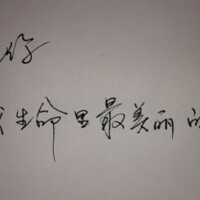 你
我生命里最美丽的